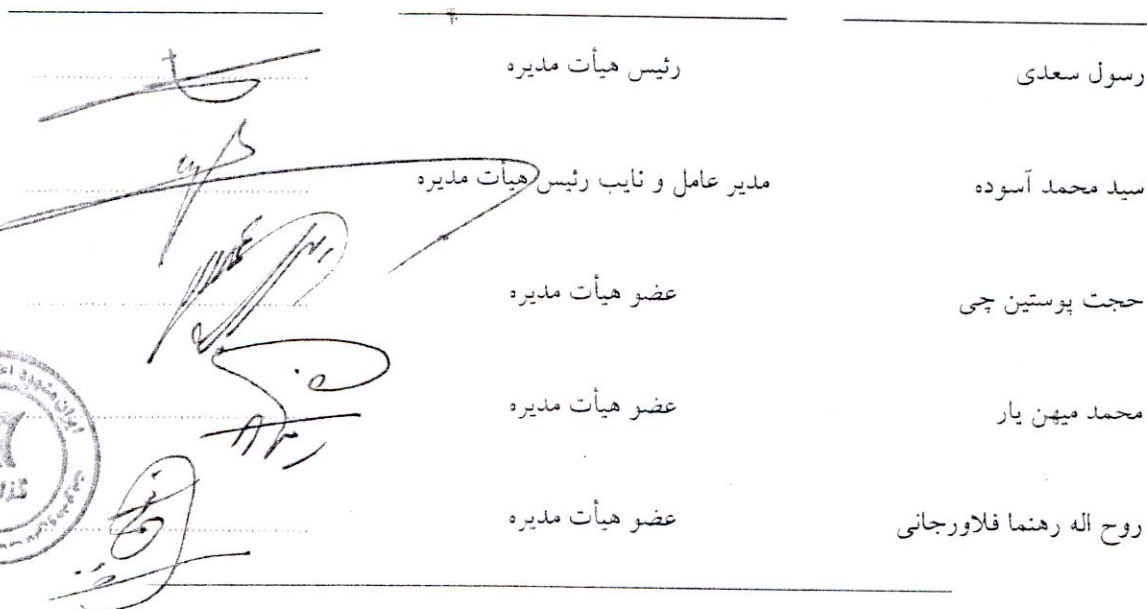 رسول سعدی رئیس هیأت مدیره
سید محمد آسوده مدیر عامل و نایب رئیس هیأت مدیره
حجت پوستین چی عضو هیأت مدیره
محمد میهن یار عضو هیأت مدیره
روح اله رهنما فلاورجانی عضو هیأت مدیره
ایران مشهود